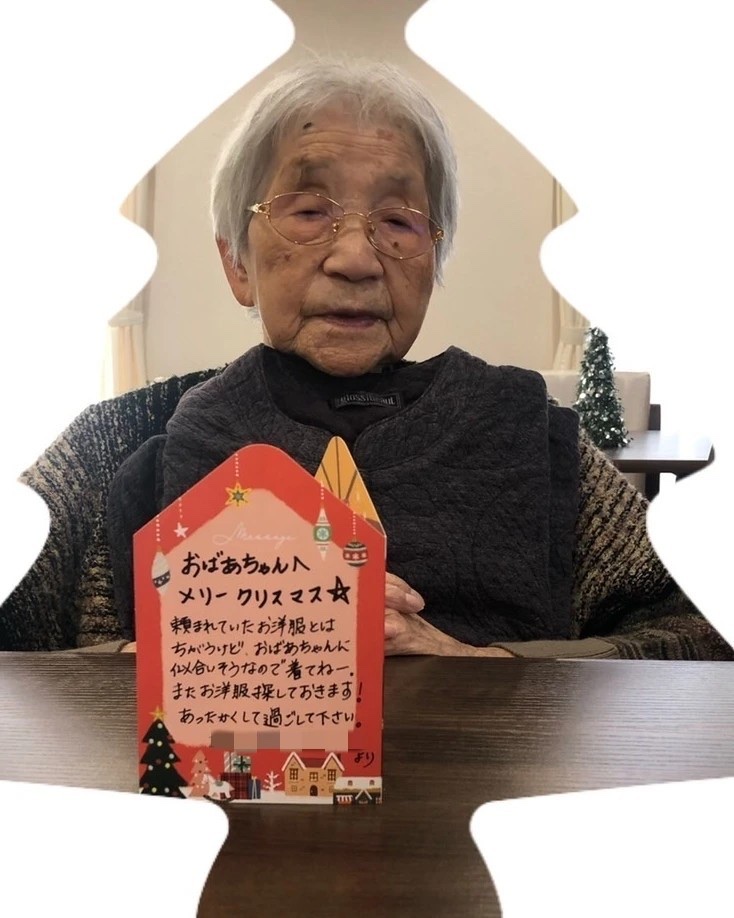 Message
おばあちゃんへ
メリークリスマス☆
頼まれていたお洋服とは
ちがうけど、おばあちゃんに
似合いそうなので着てねー。
またお洋服探しておきます!
あったかくして過ごして下さい。
より